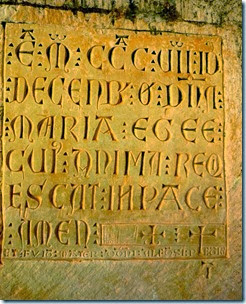 : E : M : CCC : VIIII D
DECENB : O : DNA
MARIA : EGEE
CUI : ANIMA : REQ
ESCAT : IN PACE
AMEN :